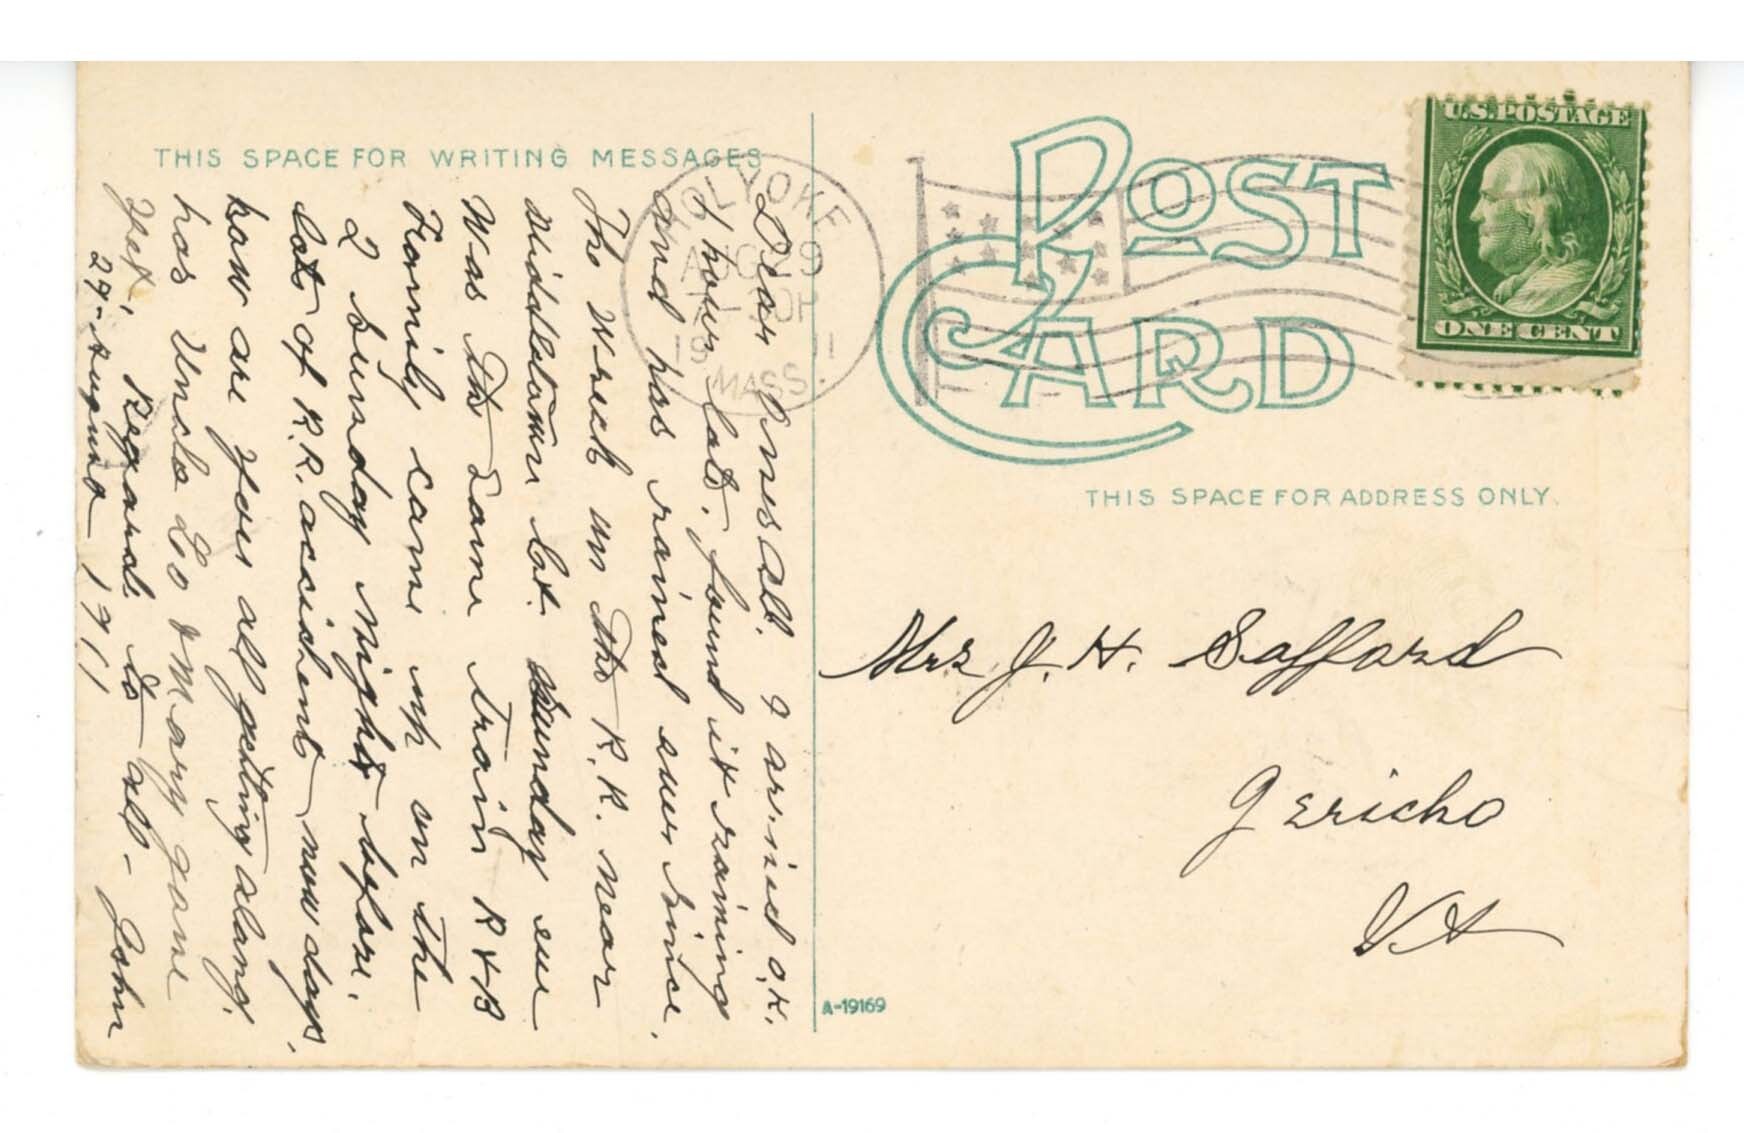 THIS SPACE FOR WRITING MESSAGES
Dear Ones all. I arrived O.K.
1 hour late. found it raining
and has rained ever since.
The Wreck on the R.R. near
Middletown Sat. Sunday eve
was the same train R & B
Family came up on the
2 Sunday Nights before.
Lots of R.R. accident now days.
how are you all getting along.
has Uncle Eo & Mary gone
yet. Regards to all - John
29 - August 1911
HOLYOKE
AUG 29
19 11
MASS.
POST
CARD
U.S. POSTAGE
ONE CENT
THIS SPACE FOR ADDRESS ONLY.
Mrs J. H. Safford
Jericho
Vt
A-19169